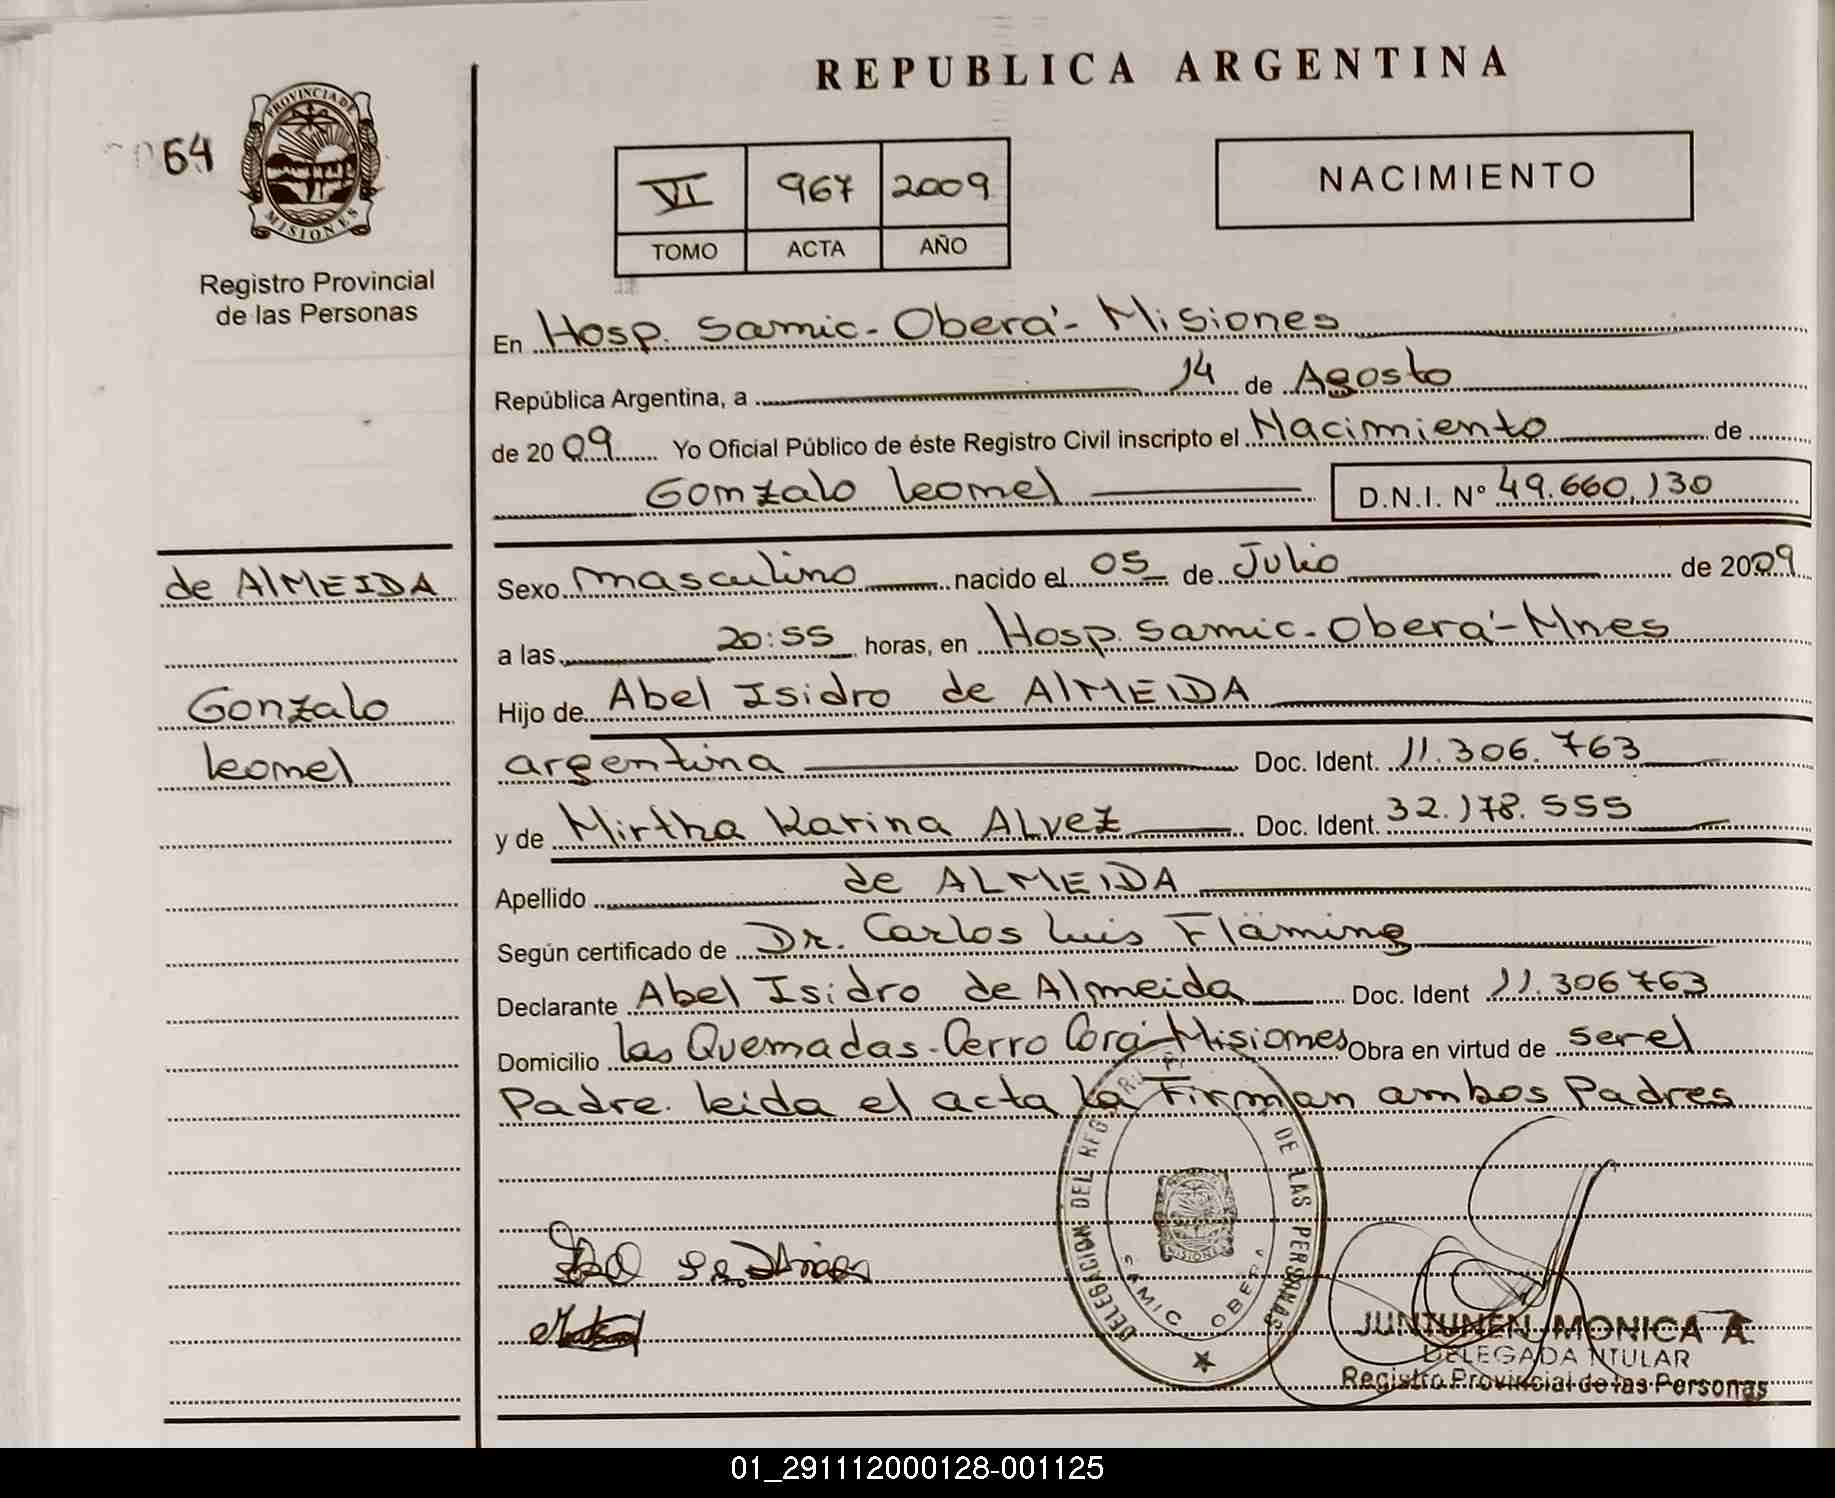 REPUBLICA ARGENTINA
64
PROVINCIA DE
MISIONES
Registro Provincial
de las Personas
VI 967 2009
TOMO ACTA AÑO
NACIMIENTO
En Hosp. Samic - Oberá - Misiones
República Argentina, a 14 de Agosto
de 2009 Yo Oficial Público de éste Registro Civil inscripto el Nacimiento de
Gonzalo leonel D.N.I. N° 49.660.130
de AlMEIDA
Gonzalo
leonel
Sexo masculino nacido el 05 de Julio de 2009
a las 20:55 horas, en Hosp. Samic - Oberá - Mnes
Hijo de Abel Isidro de AlMEIDA
argentina Doc. Ident. 11.306.763
y de Mirtha Karina ALVEZ Doc. Ident. 32.178.555
Apellido de ALMEIDA
Según certificado de Dr. Carlos luis Fläming
Declarante Abel Isidro de Almeida Doc. Ident 11.306763
Domicilio las Quemadas - Cerro Corá - Misiones Obra en virtud de ser el
Padre. leida el acta la Firman ambos Padres
DELEGACION DEL REG DE LAS PERSONAS
SAMIC OBERA
MISIONES
JUNTUNEN, MONICA A.
DELEGADA TITULAR
Registro Provincial de las Personas
01_291112000128-001125